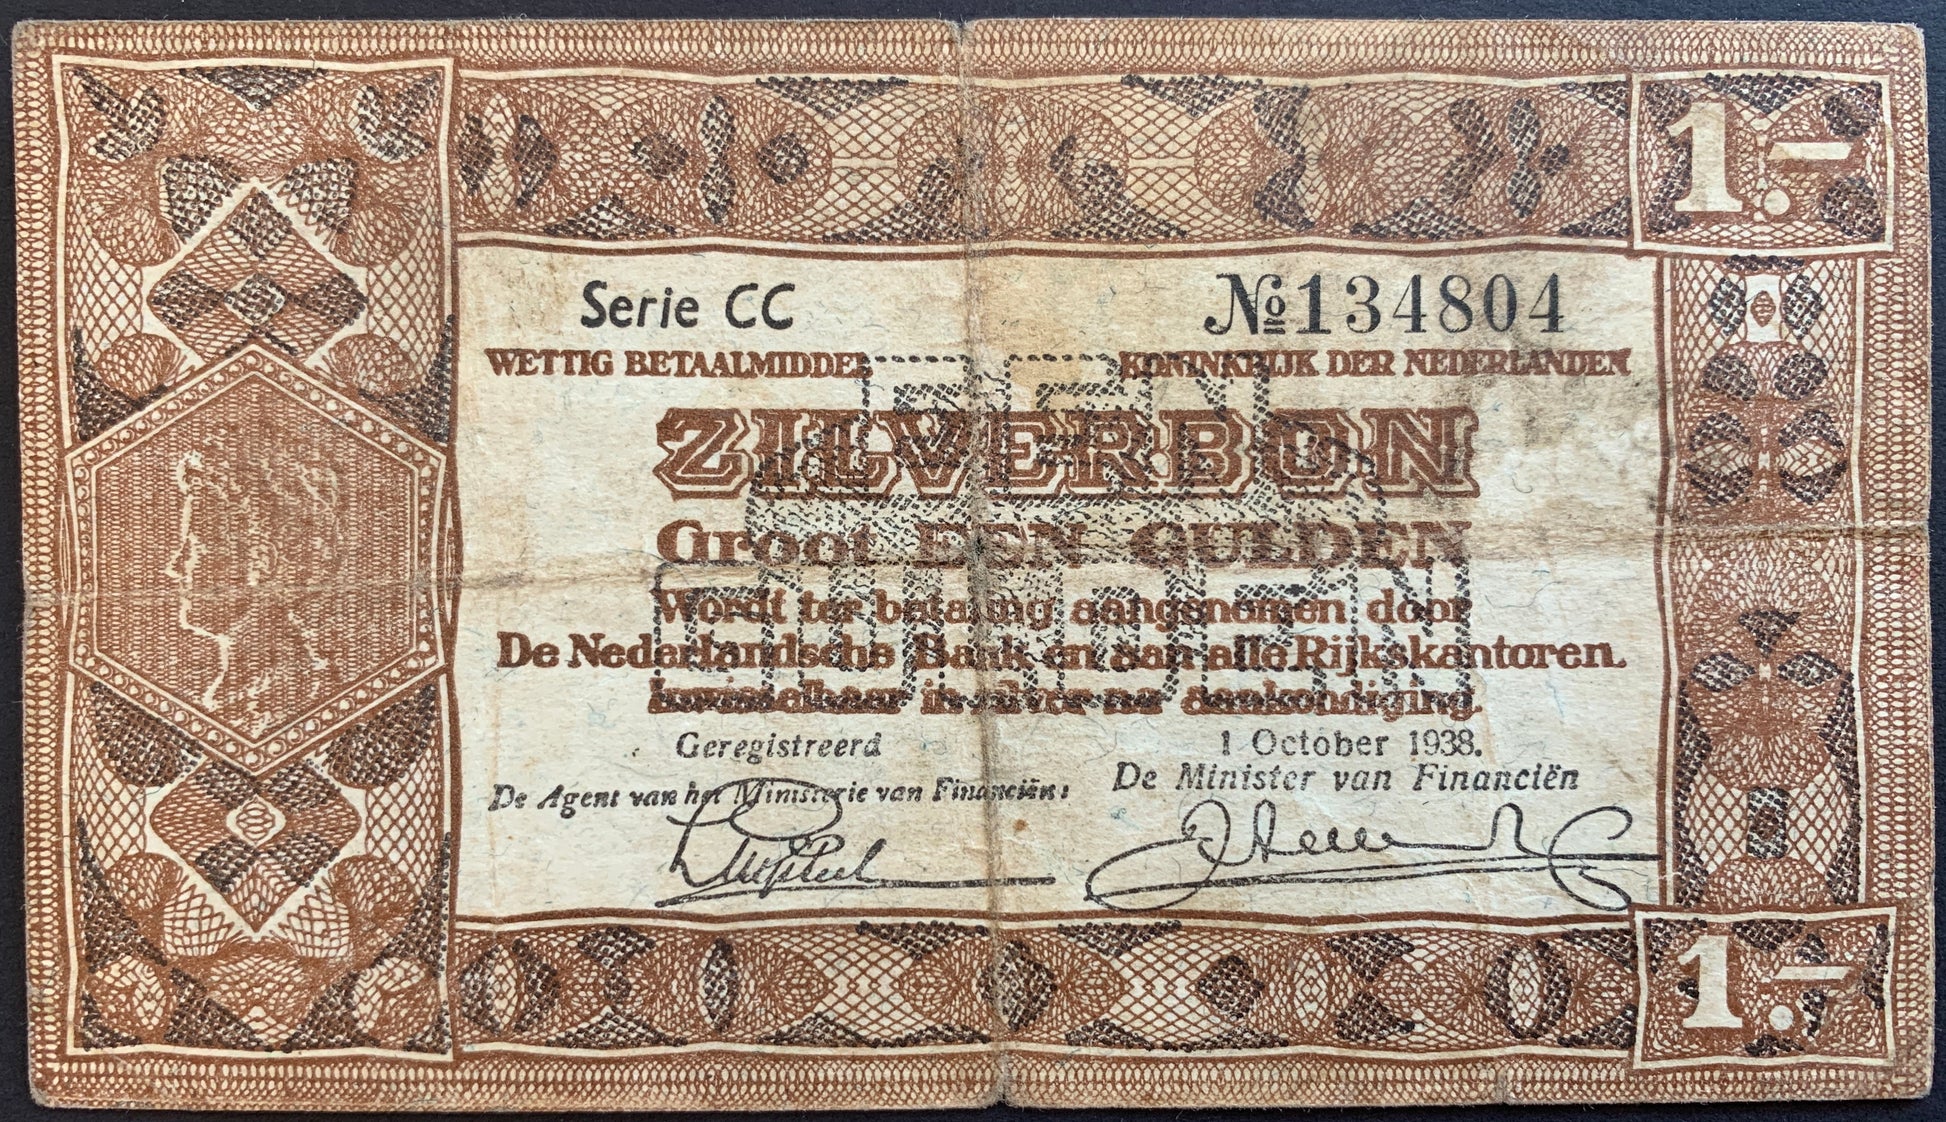 1.–
Serie CC № 134804
WETTIG BETAALMIDDEL KONINKRIJK DER NEDERLANDEN
ZILVERBON
Groot EEN GULDEN
Wordt ter betaling aangenomen door
De Nederlandsche Bank en aan alle Rijkskantoren.
Inwisselbaar in zilver na aankondiging.
EEN
GULDEN
Geregistreerd 1 October 1938.
De Agent van het Ministerie van Financiën: De Minister van Financiën
1.–